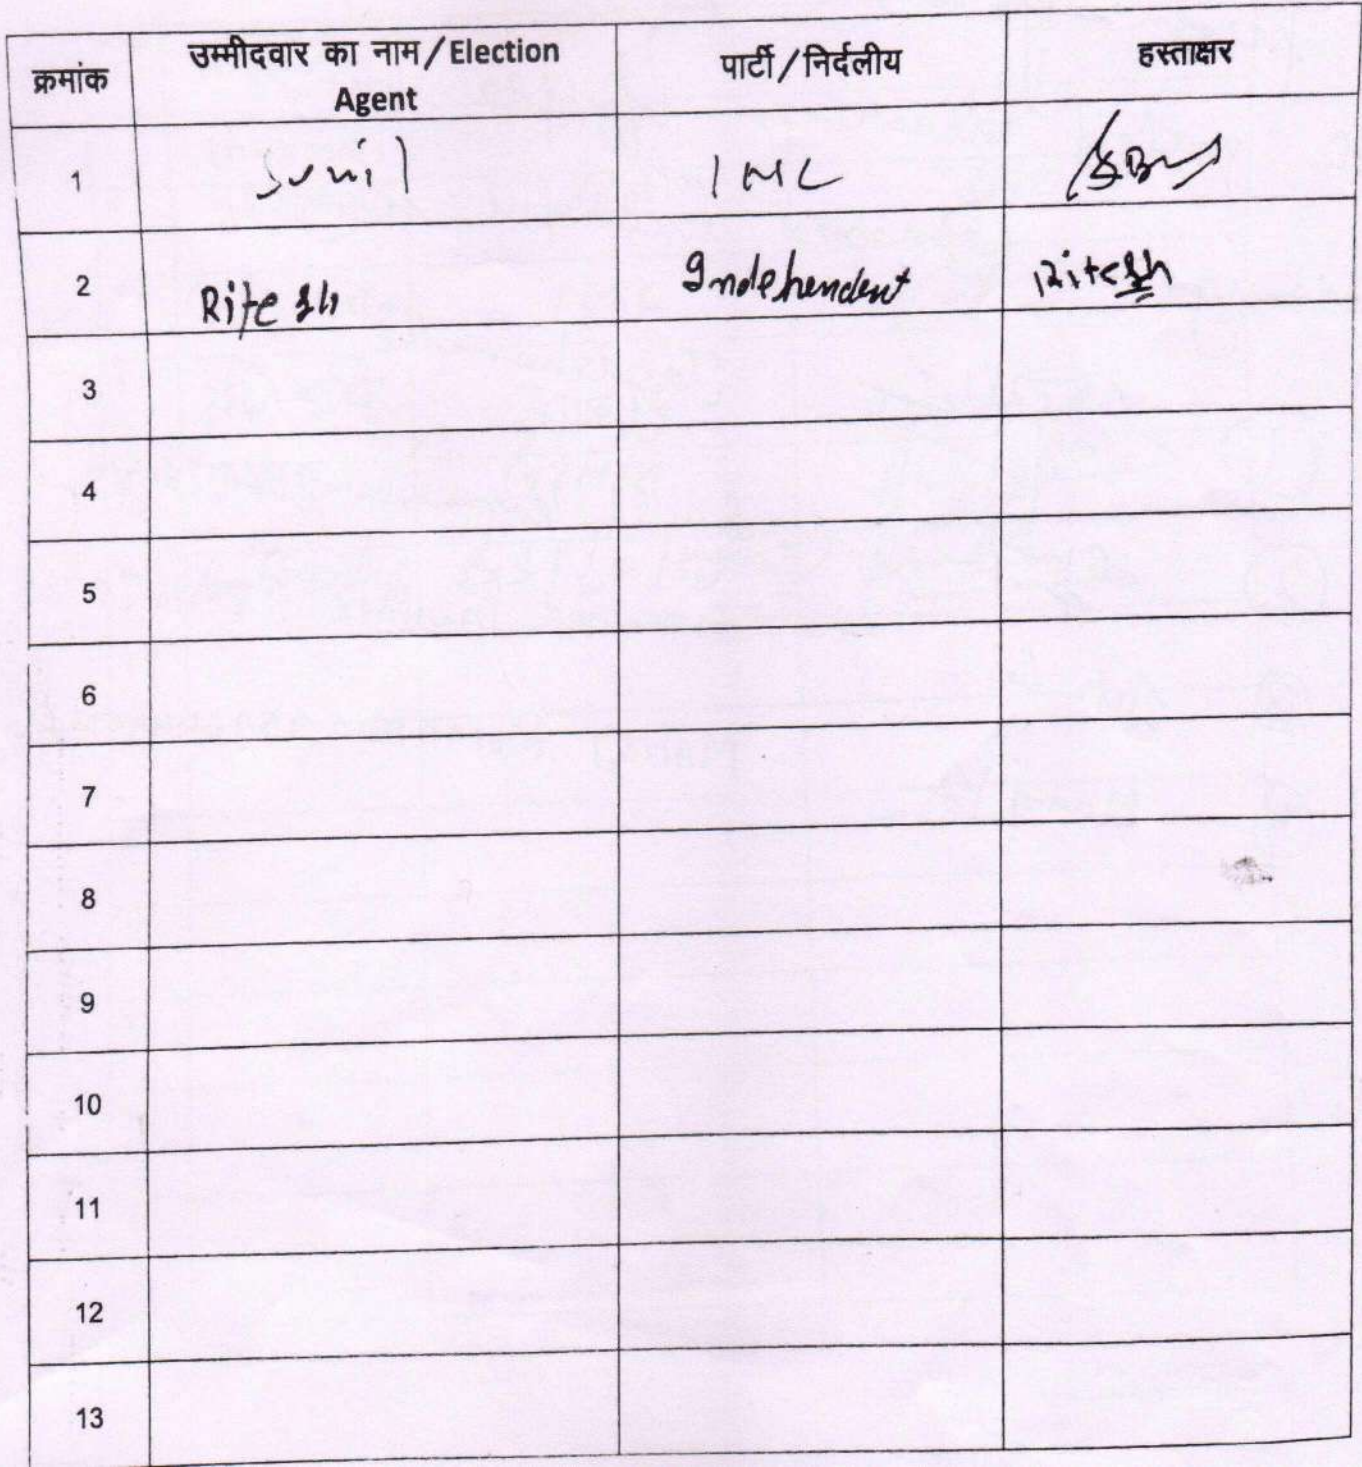 क्रमांक उम्मीदवार का नाम/Election Agent पार्टी/निर्दलीय हस्ताक्षर
1 Sunil INC
2 Ritesh Independent Ritesh
3
4
5
6
7
8
9
10
11
12
13